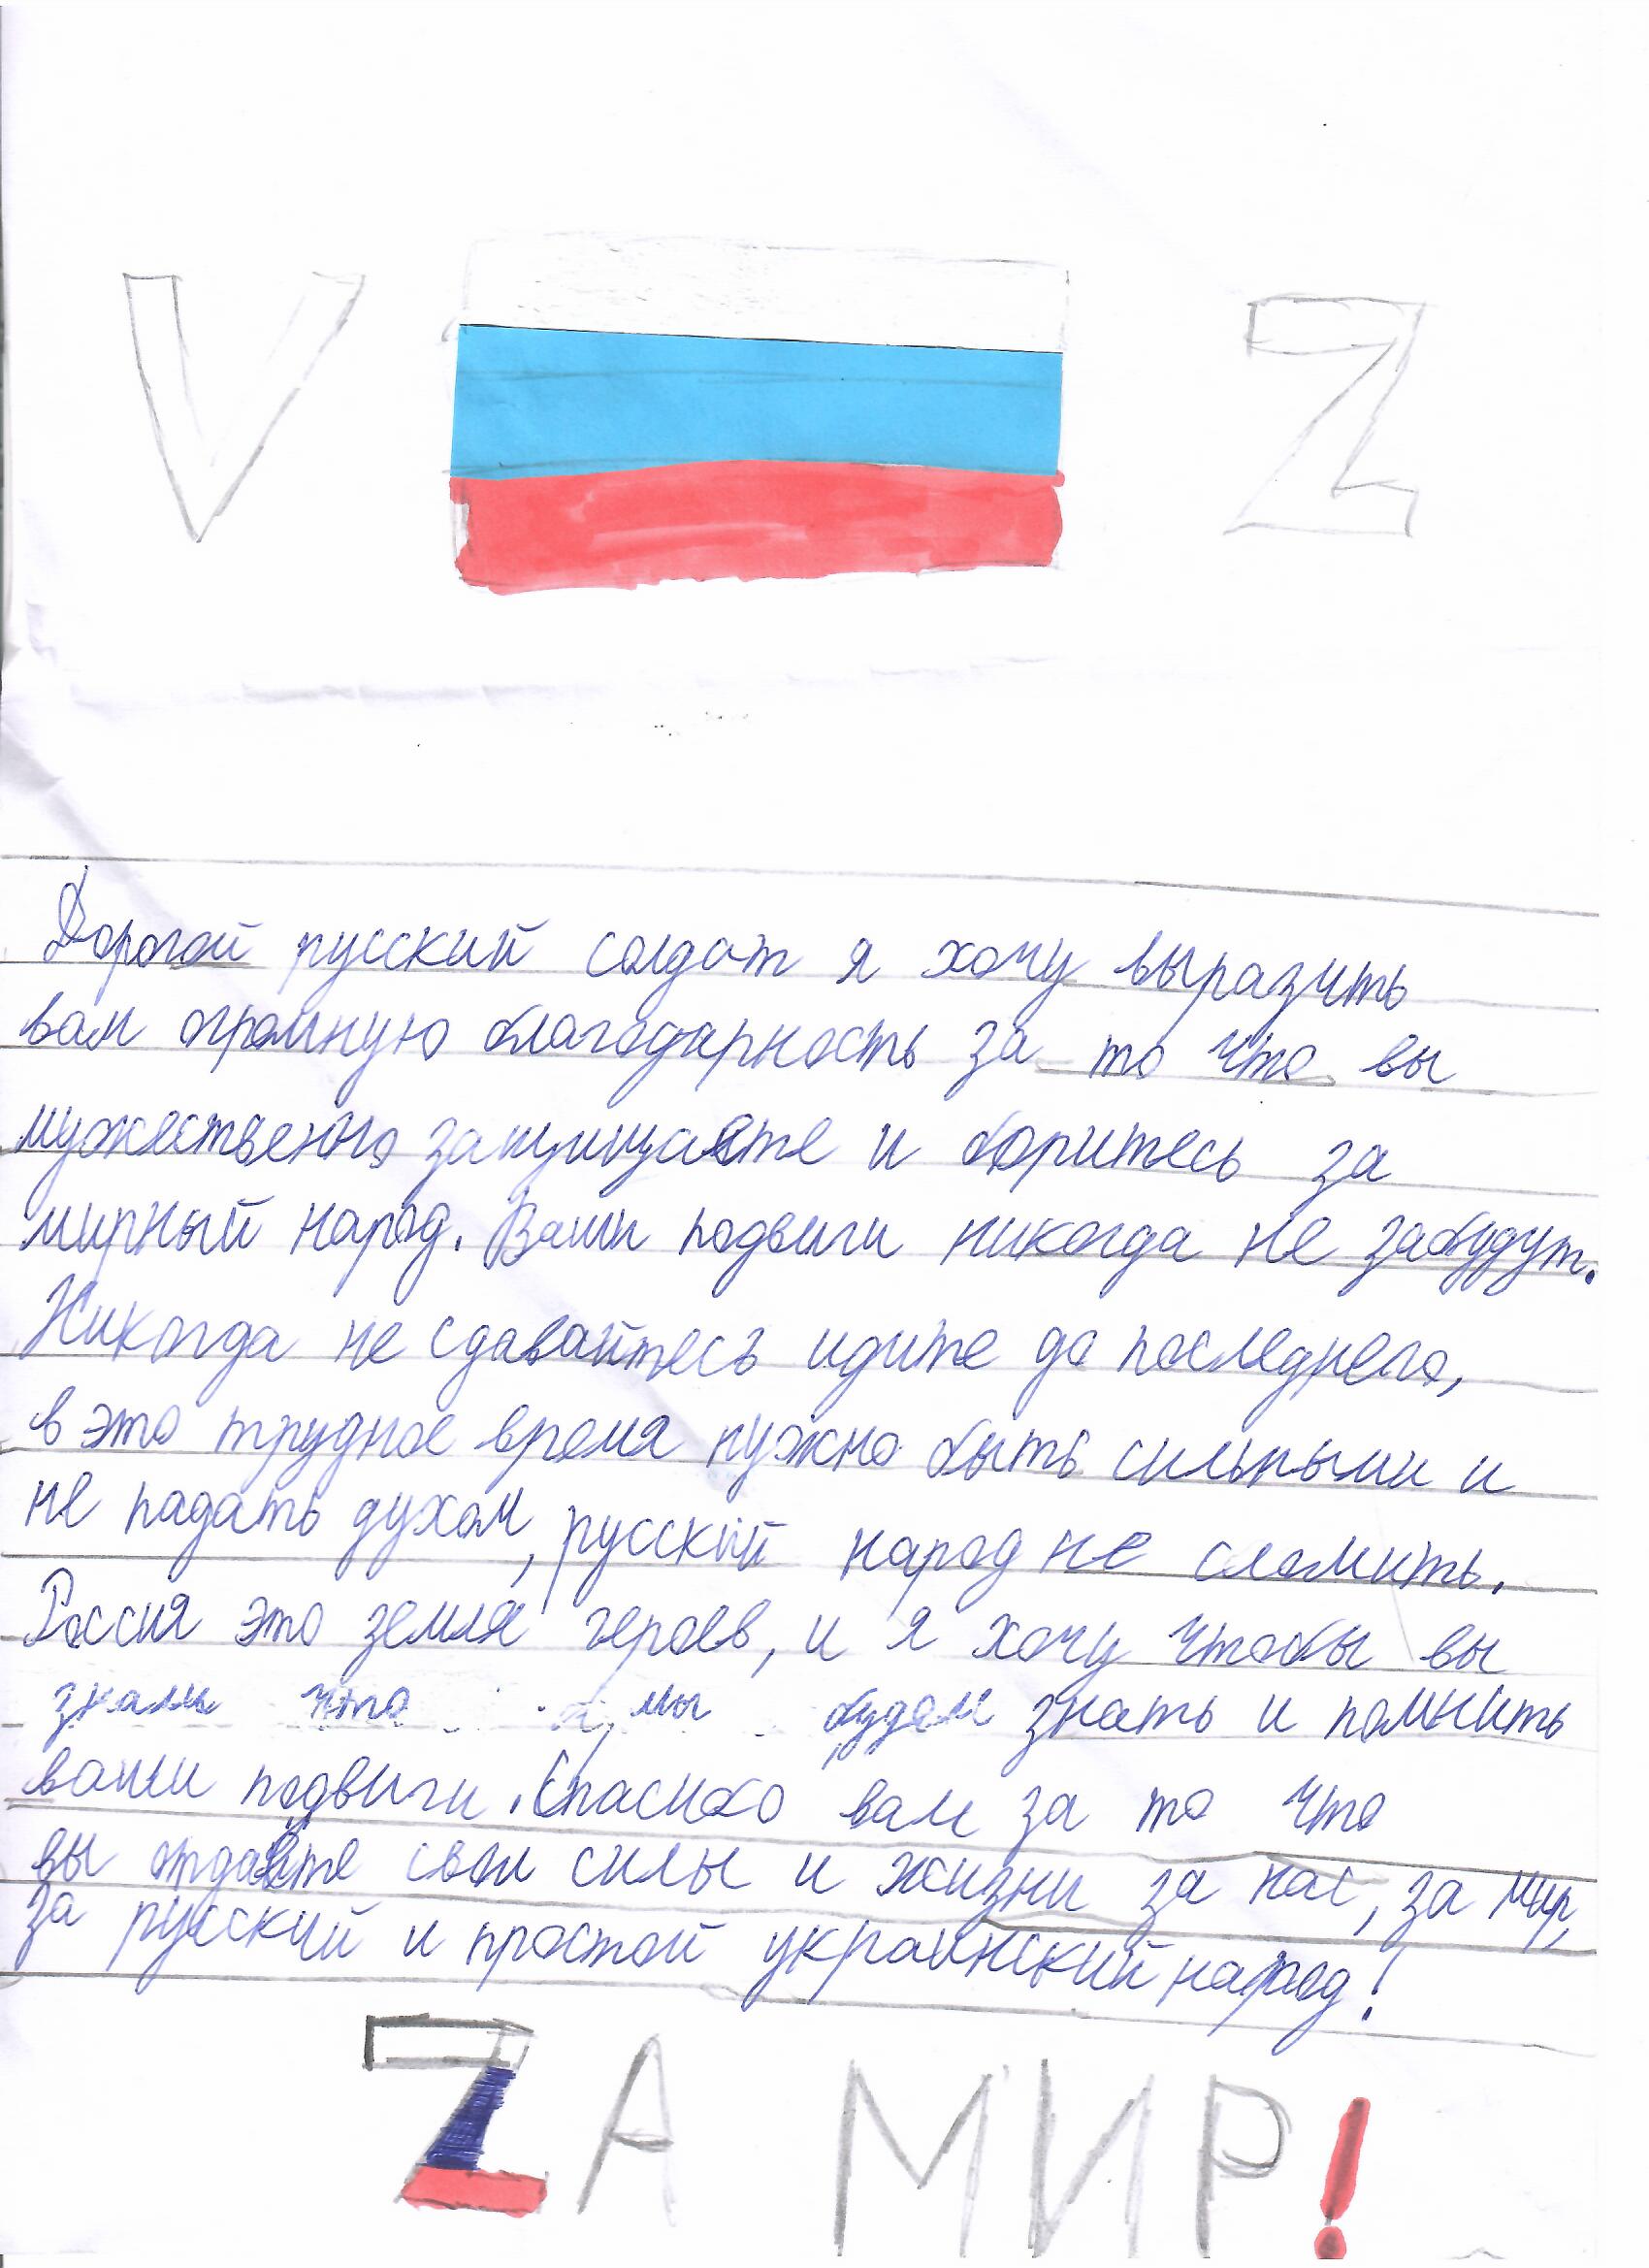 V Z
Дорогой русский солдат я хочу выразить
вам огромную благодарность за то что вы
мужественно защищаете и боритесь за
мирный народ. Ваши подвиги никогда не забудут.
Никогда не сдавайтесь идите до последнего,
в это трудное время нужно быть сильными и
не падать духом, русский народ не сломить.
Россия это земля героев, и я хочу чтобы вы
знали что мы будем знать и помнить
ваши подвиги. Спасибо вам за то что
вы отдаёте свои силы и жизни за нас, за мир,
за русский и простой украинский народ!
ZА МИР!